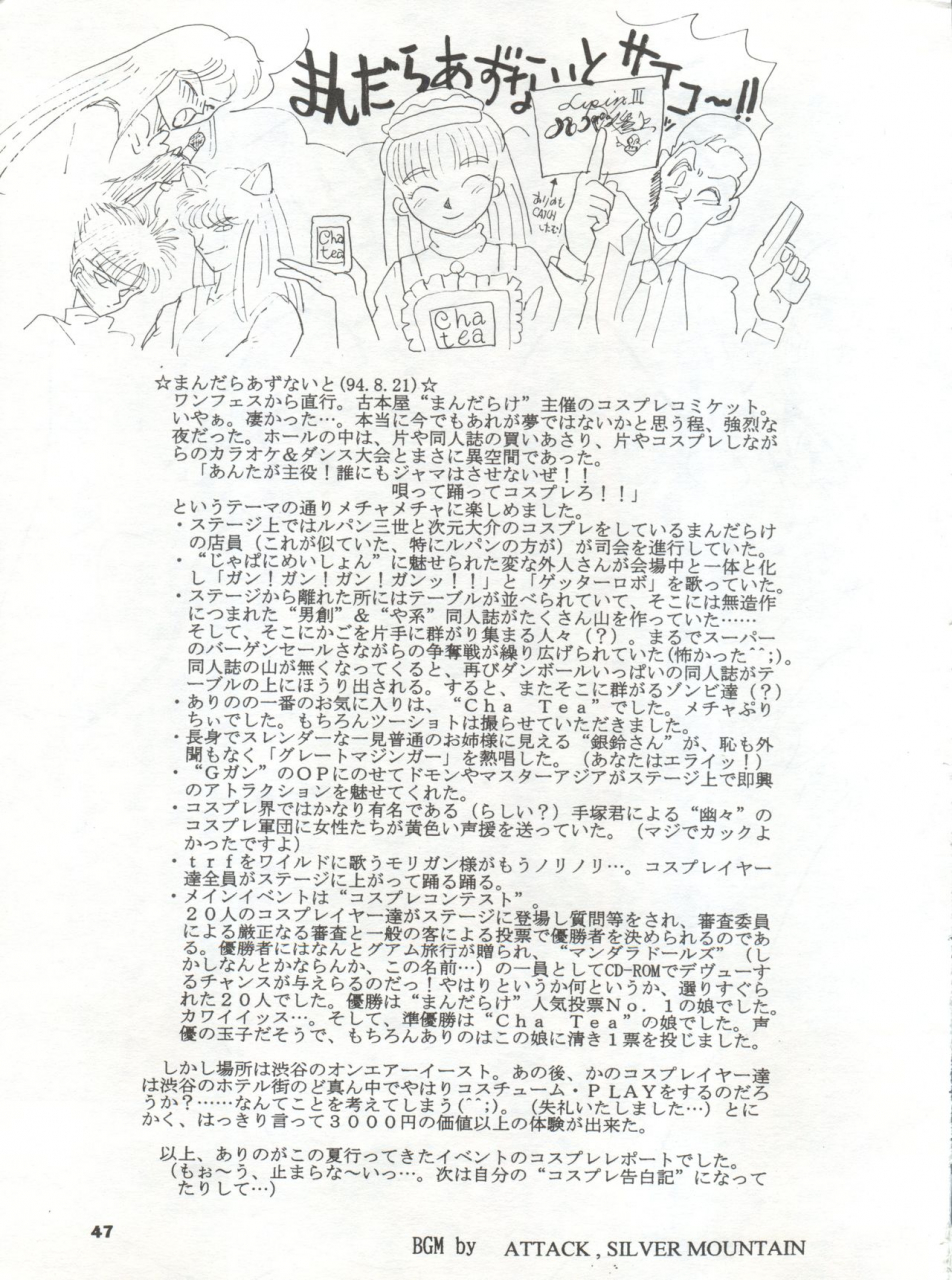 まんだらあずないと サイコ〜!!
Lupin III
ありのも
CATCH
Cha
tea
Cha
tea
☆まんだらあずないと(94.8.21)☆
ワンフェスから直行。古本屋“まんだらけ”主催のコスプレコミケット。
いやぁ。凄かった…。本当に今でもあれが夢ではないかと思う程、強烈な
夜だった。ホールの中は、片や同人誌の買いあさり、片やコスプレしなが
らのカラオケ&ダンス大会とまさに異空間であった。
「あんたが主役!誰にもジャマはさせないぜ!!
唄って踊ってコスプレろ!!」
というテーマの通りメチャメチャに楽しめました。
・ステージ上ではルパン三世と次元大介のコスプレをしているまんだらけ
の店員(これが似ていた、特にルパンの方が)が司会を進行していた。
・“じゃぱにめいしょん”に魅せられた変な外人さんが会場中と一体と化
し「ガン!ガン!ガン!ガンッ!!」と「ゲッターロボ」を歌っていた。
・ステージから離れた所にはテーブルが並べられていて、そこには無造作
につまれた“男創”&“や系”同人誌がたくさん山を作っていた……
そして、そこにかごを片手に群がり集まる人々(?)。まるでスーパー
のバーゲンセールさながらの争奪戦が繰り広げられていた(怖かった^^;)。
同人誌の山が無くなってくると、再びダンボールいっぱいの同人誌がテ
ーブルの上にほうり出される。すると、またそこに群がるゾンビ達(?)
・ありのの一番のお気に入りは、“Cha Tea”でした。メチャぷり
ちぃでした。もちろんツーショトは撮らせていただきました。
・長身でスレンダーな一見普通のお姉様に見える“銀鈴さん”が、恥も外
聞もなく「グレートマジンガー」を熱唱した。(あなたはエライッ!)
・“Gガン”のOPにのせてドモンやマスターアジアがステージ上で即興
のアトラクションを魅せてくれた。
・コスプレ界ではかなり有名である(らしい?)手塚君による“幽々”の
コスプレ軍団に女性たちが黄色い声援を送っていた。(マジでカックよ
かったですよ)
・trfをワイルドに歌うモリガン様がもうノリノリ…。コスプレイヤー
達全員がステージに上がって踊る踊る。
・メインイベントは“コスプレコンテスト”。
20人のコスプレイヤー達がステージに登場し質問等をされ、審査委員
による厳正なる審査と一般の客による投票で優勝者を決められるのであ
る。優勝者にはなんとグアム旅行が贈られ、“マンダラドールズ”(し
かしなんとかならんか、この名前…)の一員としてCD-ROMでデヴューす
るチャンスが与えらるのだっ!やはりというか何というか、選りすぐら
れた20人でした。優勝は“まんだらけ”人気投票No.1の娘でした。
カワイイッス…。そして、準優勝は“Cha Tea”の娘でした。声
優の玉子だそうで、もちろんありのはこの娘に清き1票を投じました。
しかし場所は渋谷のオンエアーイースト。あの後、かのコスプレイヤー達
は渋谷のホテル街のど真ん中でやはりコスチューム・PLAYをするのだろ
うか?……なんてことを考えてしまう(^^;)。(失礼いたしました…)とに
かく、はっきり言って3000円の価値以上の体験が出来た。
以上、ありのがこの夏行ってきたイベントのコスプレレポートでした。
(もぉ〜う、止まらな〜いっ…。次は自分の“コスプレ告白記”になって
たりして…)
47
BGM by ATTACK , SILVER MOUNTAIN